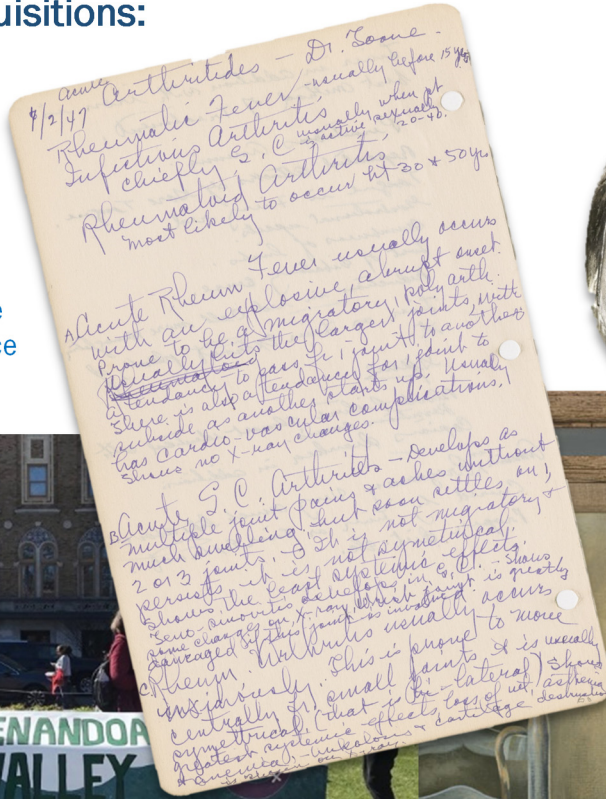 uisitions:
4/2/47 acute Arthritides - Dr. Toone.
Rheumatic Fever - usually before 15 yrs
Infectious Arthritis
chiefly G.C. usually when pt
is active sexually
20-40.
Rheumatoid Arthritis,
most likely to occur bt 30 + 50 yrs
A. Acute Rheum Fever usually occurs
with an explosive, abrupt onset.
Prone to be a migratory, poly arth.
Usually hits the larger joints, with
a tendancy to pass fr 1 joint to another
There is also a tendancy for 1 joint to
subside as another starts up. Usually
has cardio-vascular complications,
shows no X-ray changes.
B. Acute G.C. Arthritis - Develops as
multiple joint pains & aches without
much swelling, but soon settles on 1,
2 or 3 joints, It is not migratory &
persists, it is not symetrical.
Shows the least systemic effects.
Teno-sinovitis develops in - Shows
some changes on X-ray, which joint is greatly
damaged if this joint is involved
C. Rheum. Arthritis usually occurs
insidiously. This is prone to move
centrally fr small joints & is usually
symetrical (that is bi-lateral) Shows
greatest systemic effects, loss of wt,
& anemia, cartilage destruction
is shown on X-ray.
e
ce
ENANDOA
VALLEY